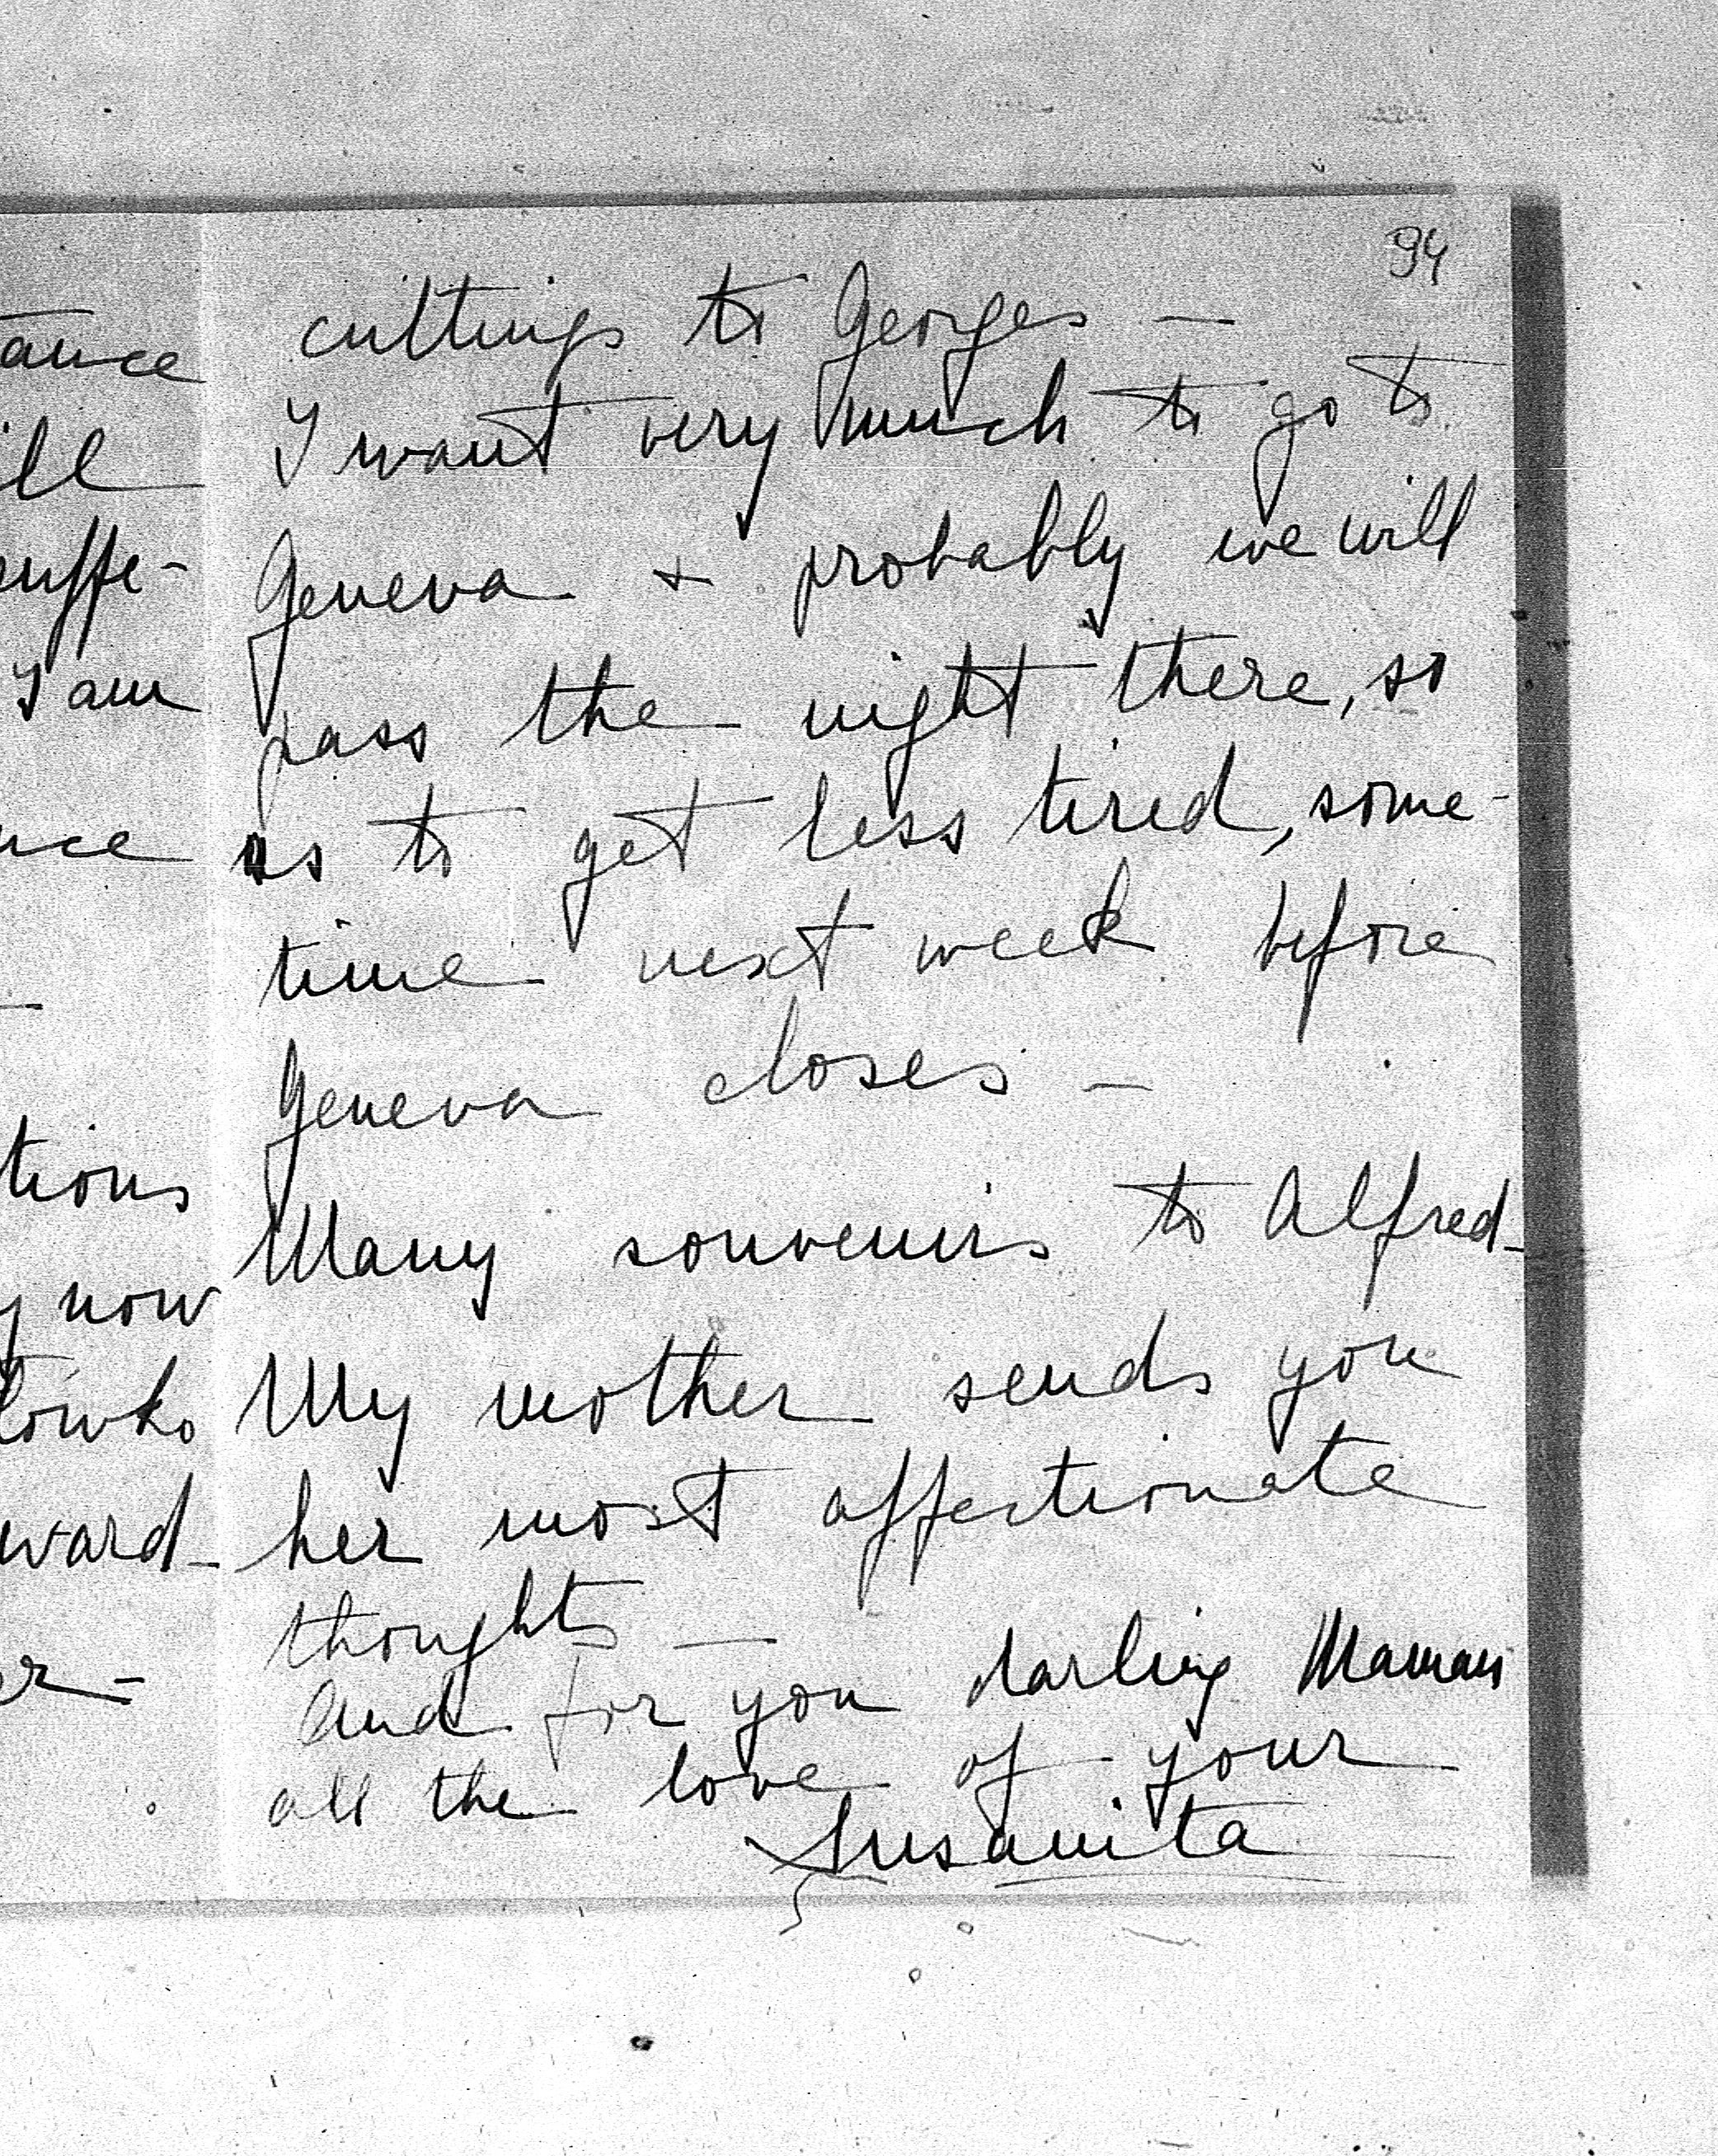 94
cuttings to Georges —
I want very much to go to
Geneva + probably we will
pass the night there, so
as to get less tired, some-
time next week before
Geneva closes —
Many souvenirs to Alfred_
My mother sends you
her most affectionate
thoughts —
And for you darling Maman
all the love of your
Susanita
ance
ill
I am
nce
tions
y now
ward_
er —